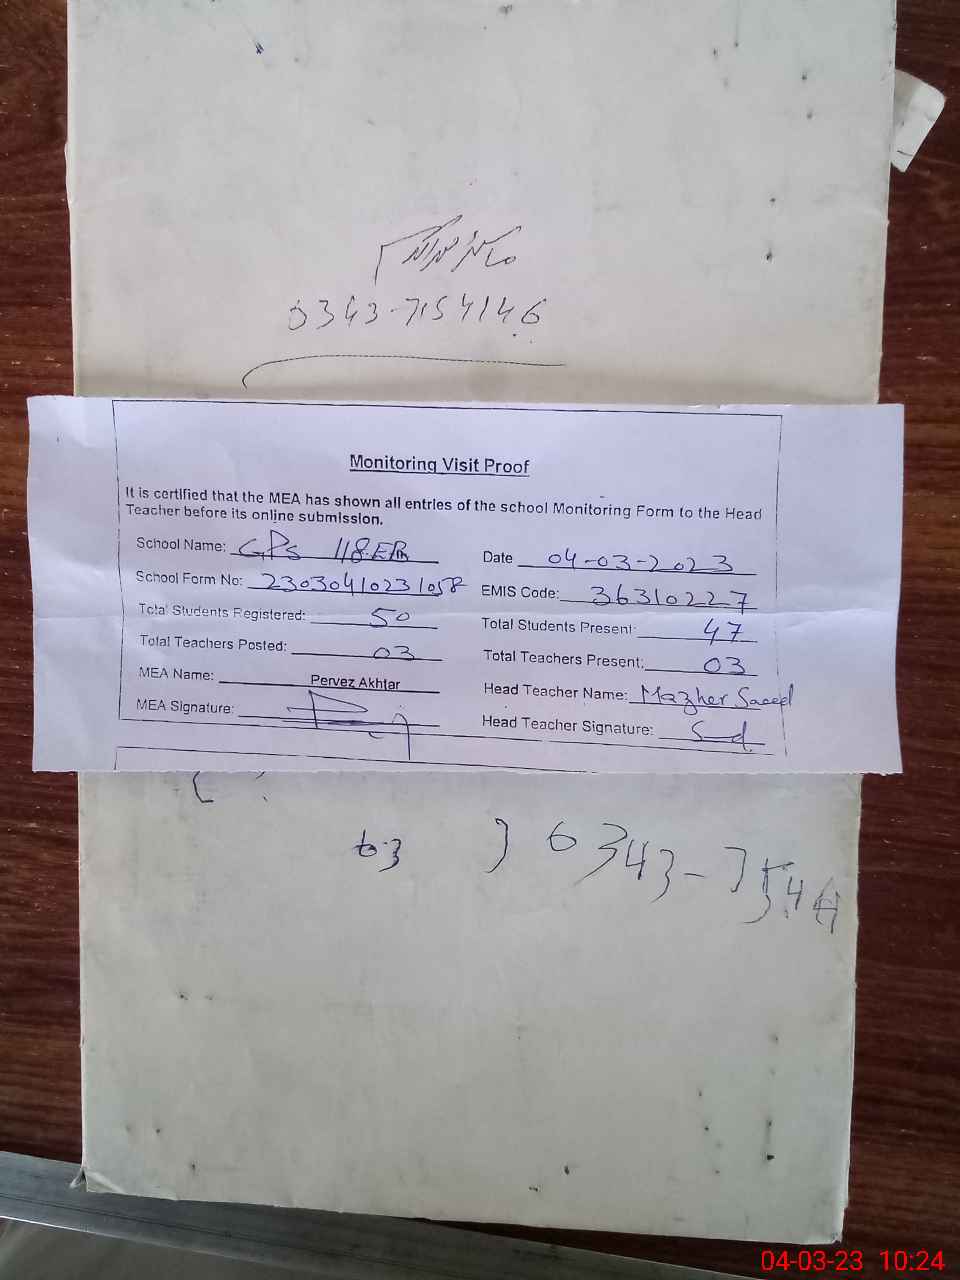 0343-7154146
Monitoring Visit Proof
It is certified that the MEA has shown all entries of the school Monitoring Form to the Head
Teacher before its online submission.
School Name: GPs 118.EB
Date 04-03-2023
School Form No: 23030410231058
EMIS Code: 36310227
Total Students Registered: 50
Total Students Present: 47
Total Teachers Posted: 03
Total Teachers Present: 03
MEA Name: Pervez Akhtar
Head Teacher Name: Mazher Saeed
MEA Signature:
Head Teacher Signature:
03
0343-754
04-03-23 10:24